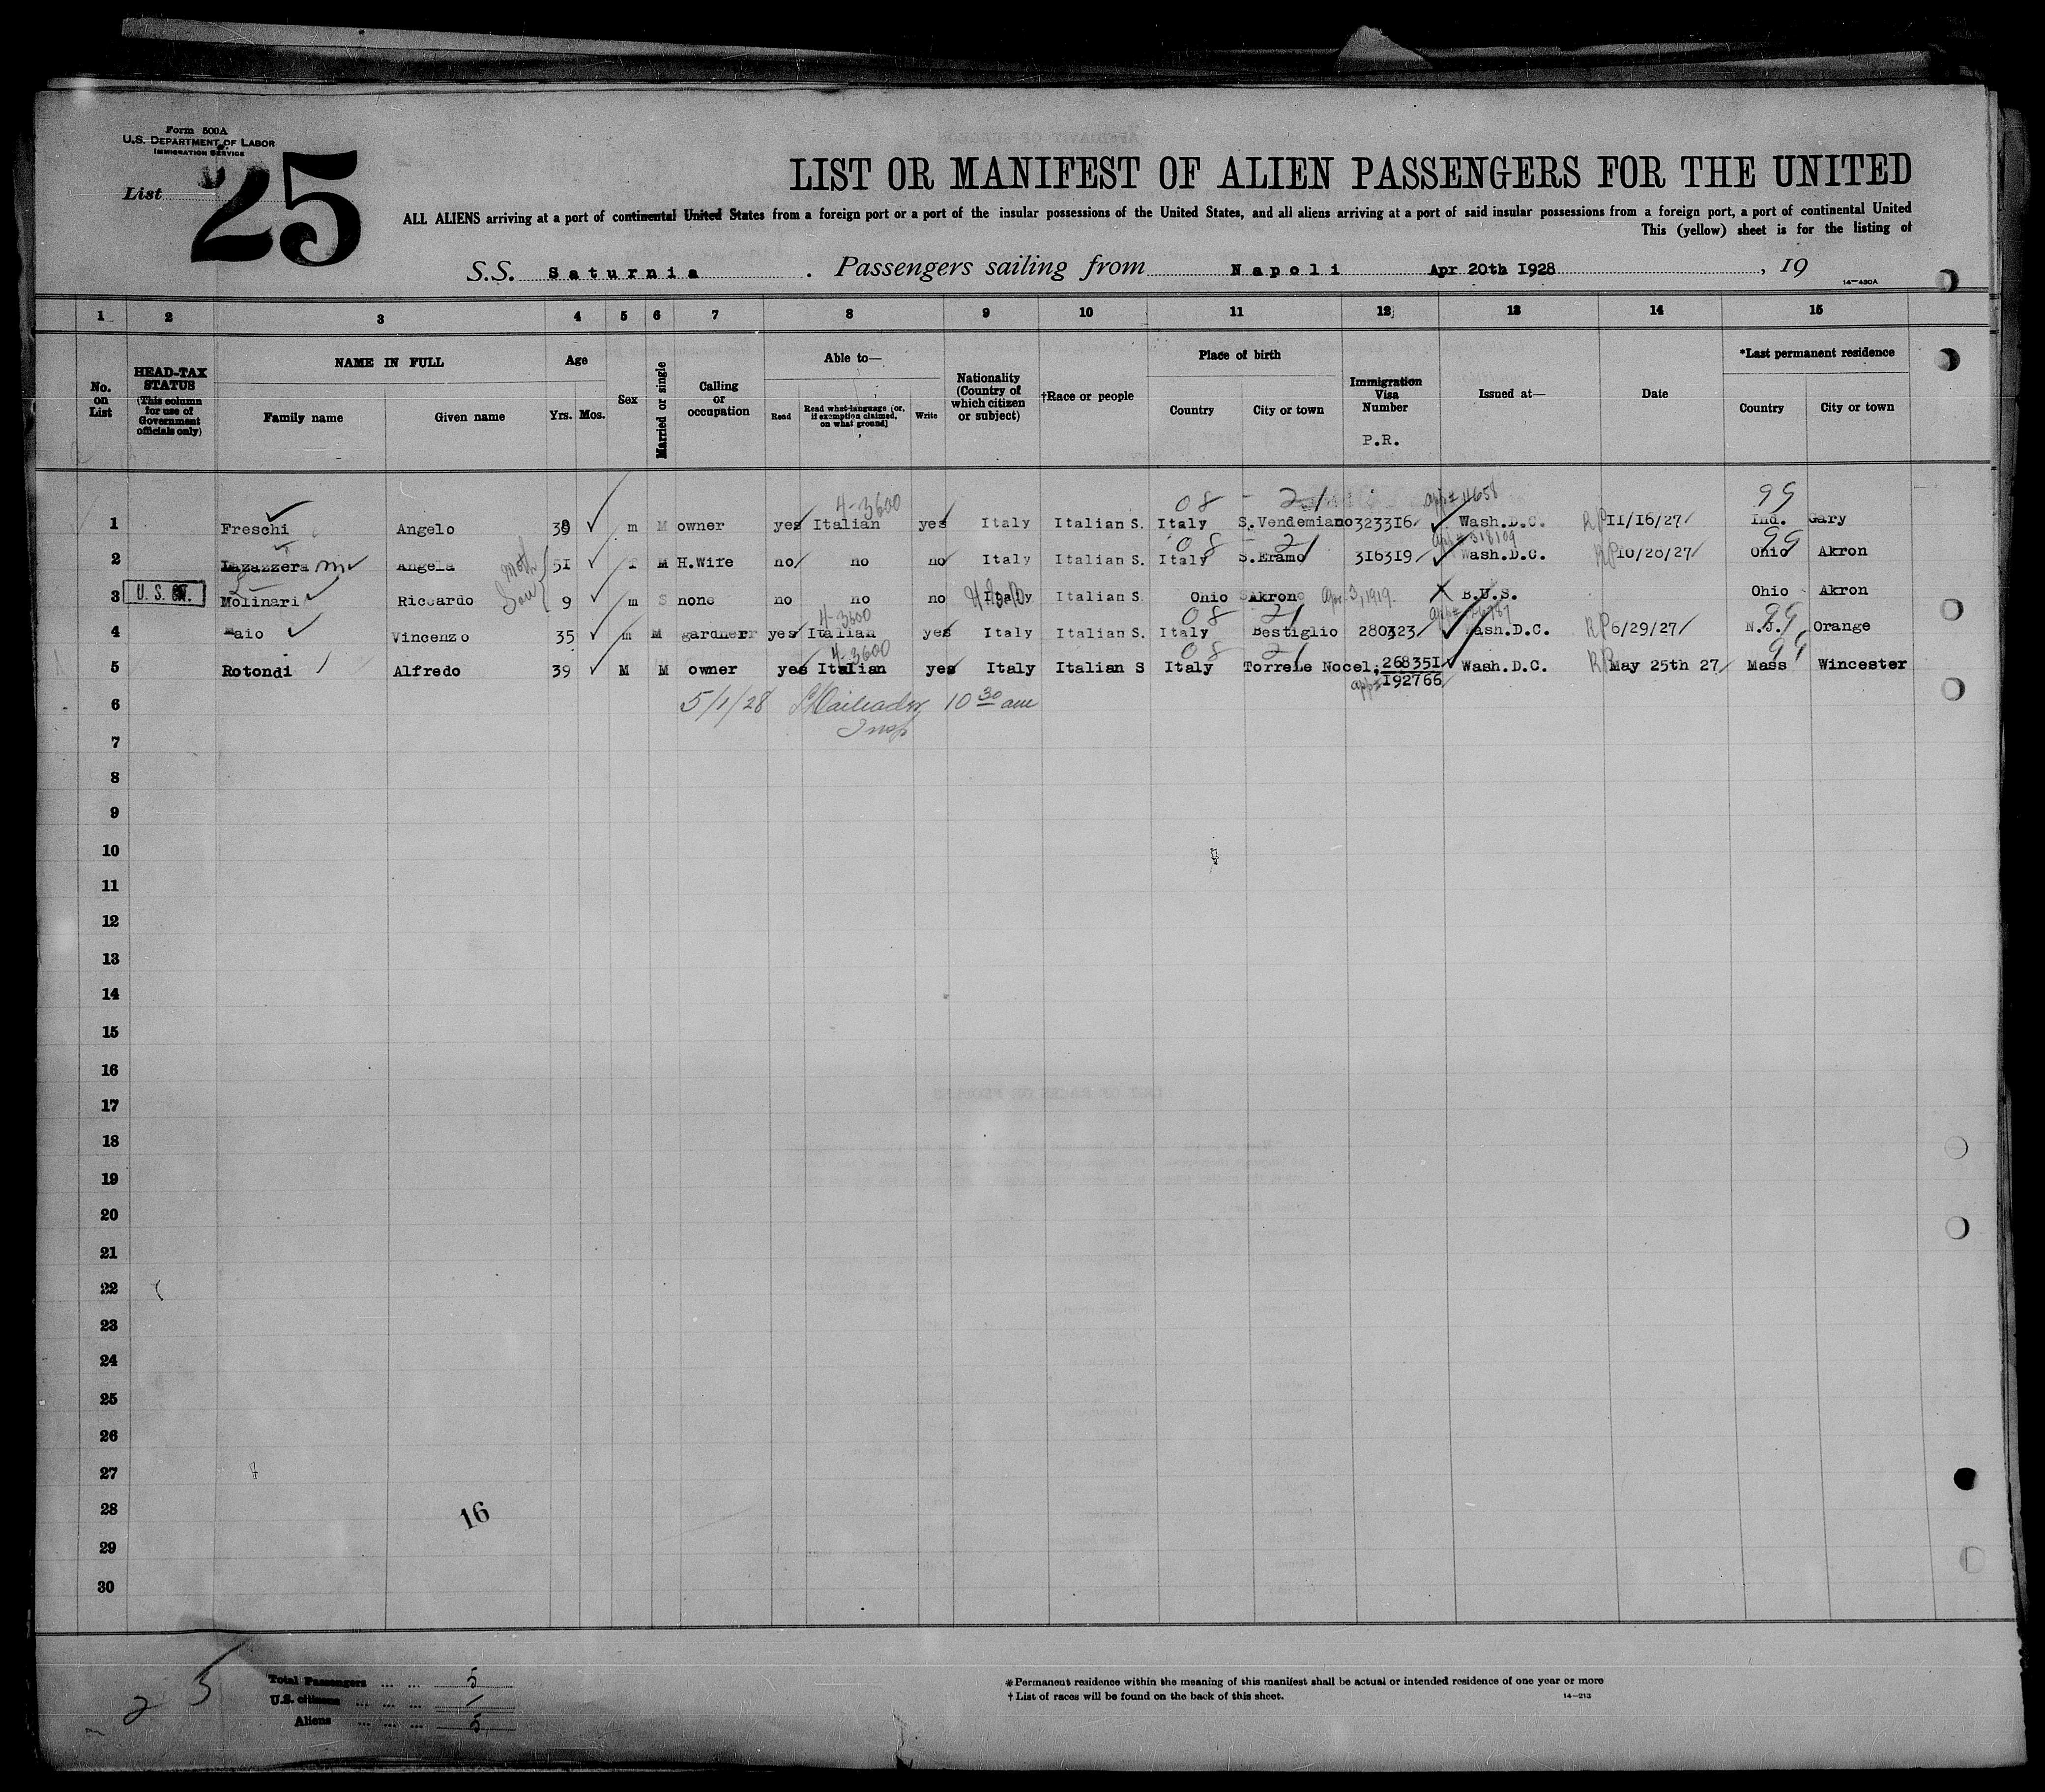 Form 500A
U.S. DEPARTMENT OF LABOR
IMMIGRATION SERVICE
List 25
LIST OR MANIFEST OF ALIEN PASSENGERS FOR THE UNITED
ALL ALIENS arriving at a port of continental United States from a foreign port or a port of the insular possessions of the United States, and all aliens arriving at a port of said insular possessions from a foreign port, a port of continental United
This (yellow) sheet is for the listing of
S.S. Saturnia. Passengers sailing from Napoli Apr 20th 1928, 19
14—430A
1 2 3 4 5 6 7 8 9 10 11 12 13 14 15
No. on List
HEAD-TAX STATUS (This column for use of Government officials only)
NAME IN FULL
Family name Given name
Age
Yrs. Mos.
Sex
Married or single
Calling or occupation
Able to—
Read Read what language [or, if exemption claimed, on what ground] Write
Nationality (Country of which citizen or subject)
†Race or people
Place of birth
Country City or town
Immigration Visa Number
P.R.
Issued at—
Date
*Last permanent residence
Country City or town
4-3600 08 - 21 app# 99
1 Freschi Angelo 39 m M owner yes Italian yes Italy Italian S. Italy S.Vendemiano 323316 Wash.D.C. RP 11/16/27 Ind. Gary
08 21 app# 318109 99
2 Lazazzera m Angela Moth 51 f M H.Wife no no no Italy Italian S. Italy S.Eramo 316319 Wash.D.C. RP 10/28/27 Ohio Akron
3 U.S. Molinari Riccardo Son 9 m S none no no no Italy Italian S. Ohio Akron Apr. 3, 1919. X B.U.S. Ohio Akron
4-3600 08 21 app# 99
4 Maio Vincenzo 35 m M gardner yes Italian yes Italy Italian S. Italy Bestiglio 280323 Wash.D.C. RP 6/29/27 N.J. Orange
4-3600 08 21 99
5 Rotondi Alfredo 39 M M owner yes Italian yes Italy Italian S Italy Torrele Nocel; 268351 Wash.D.C. RP May 25th 27 Mass Wincester
app# 192766
6 5/1/28 10 30 am
Insp
7
8
9
10
11
12
13
14
15
16
17
18
19
20
21
22
23
24
25
26
27
28
29
30
16
25
Total Passengers ... ... 5
U.S. citizens ... ... ... /
Aliens ... ... ... 5
*Permanent residence within the meaning of this manifest shall be actual or intended residence of one year or more
†List of races will be found on the back of this sheet.
14—213